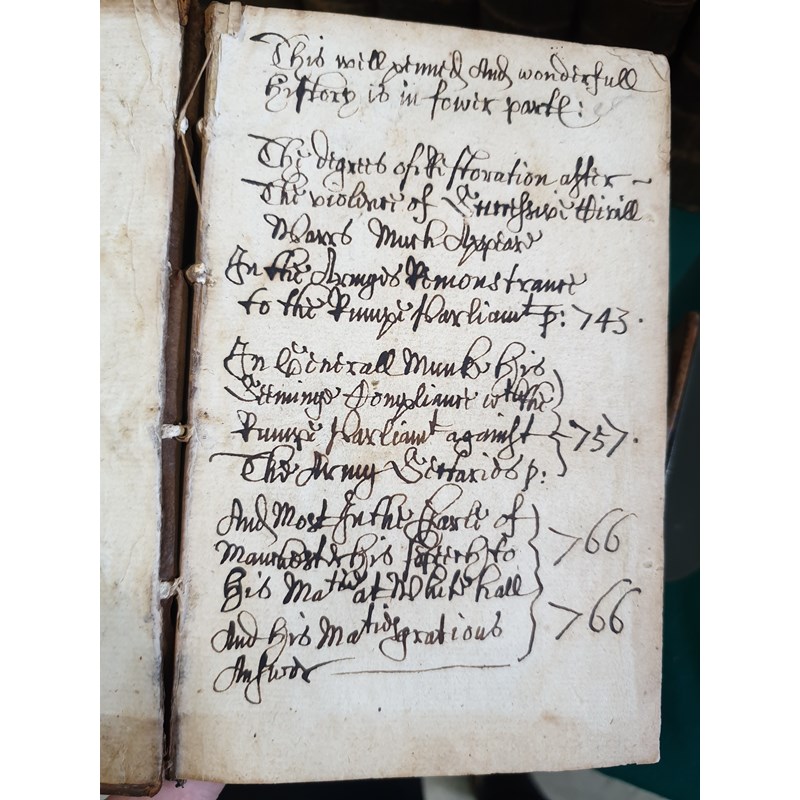 This well penned And wonderfull
History is in fower parts:
The degrees of Restoration after
The violence of Successive Civill
Warrs Much Appeare
In the Armyes Remonstrance
to the Rumpe Parliamt p: 743.
In Generall Munk his
Seeminge Compliance wth the
Rumpe Parliamt against 757.
The Army Sectaries p:
And Most In the Earle of 766
Manchester His speech to
His Maties at White hall 766
And His Maties gratious
Answer